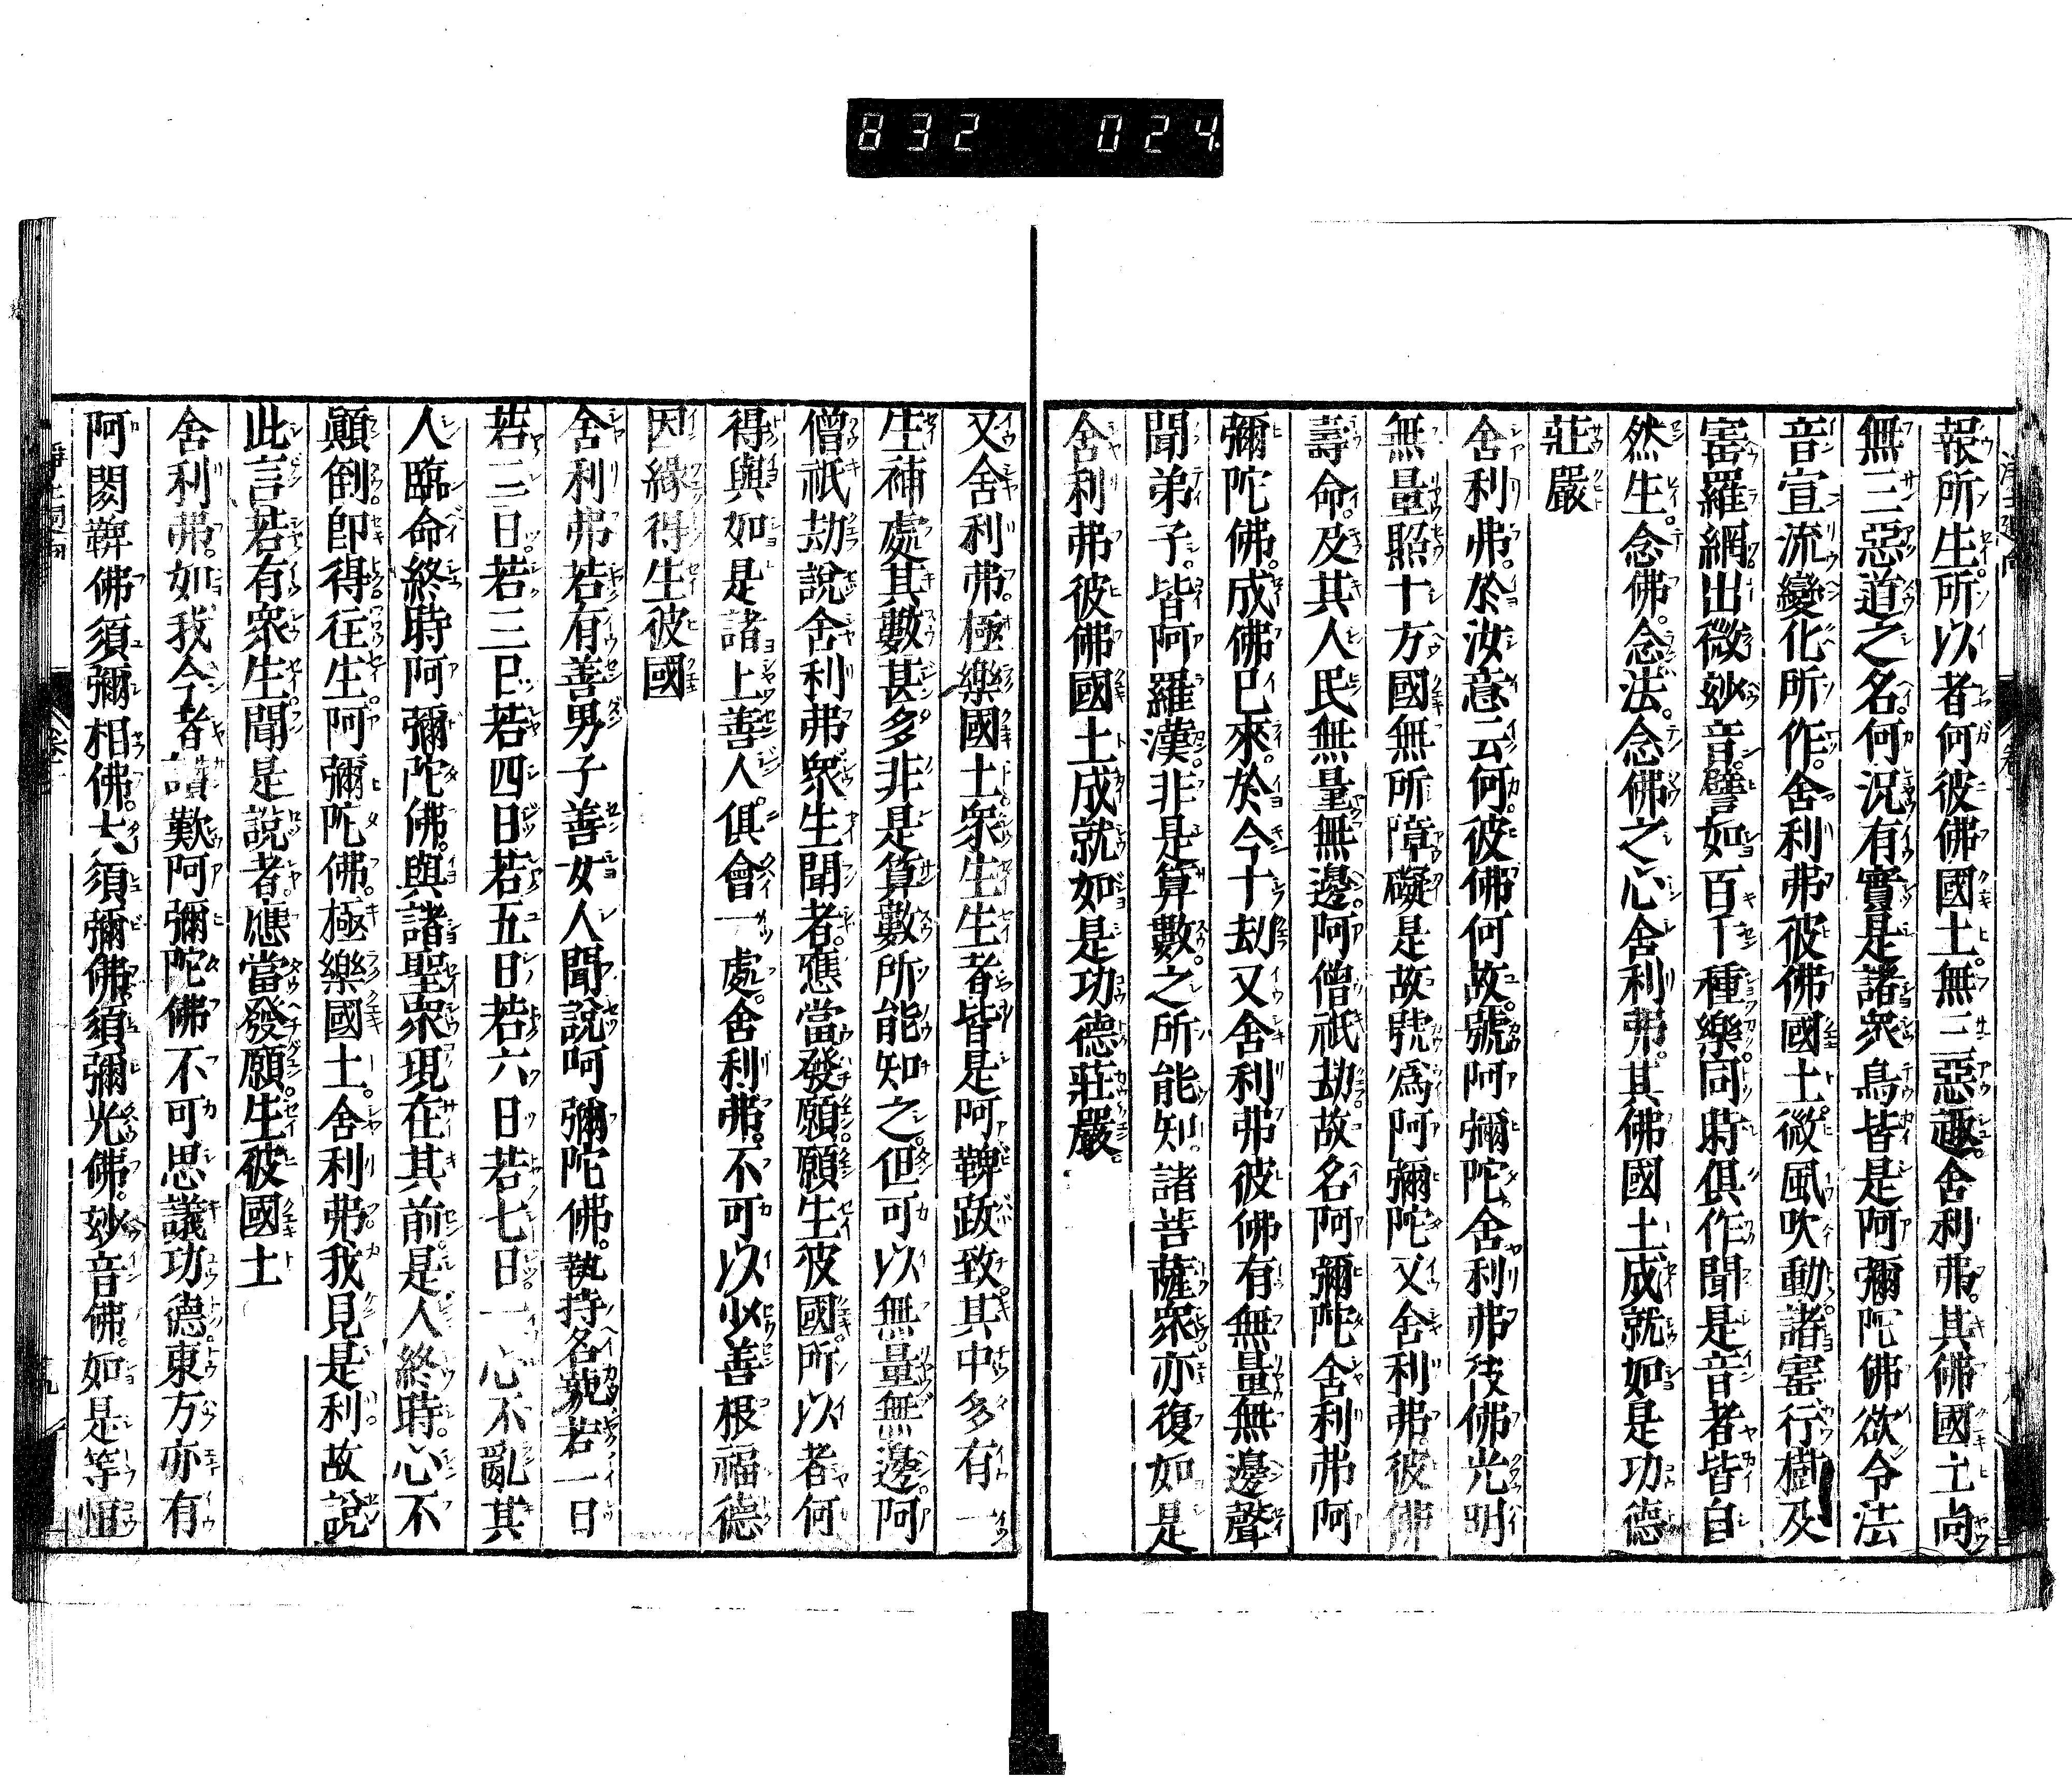 832 024
報所生所以者何彼佛國土無三惡趣舍利弗其佛國土尚
無三惡道之名何況有實是諸衆鳥皆是阿彌陀佛欲令法
音宣流變化所作舍利弗彼佛國土微風吹動諸寶行樹及
寶羅網出微玅音譬如百千種樂同時俱作聞是音者皆自
然生念佛念法念佛之心舍利弗其佛國土成就如是功德
莊嚴
舍利弗於汝意云何彼佛何故號阿彌陀舍利弗彼佛光明
無量照十方國無所障礙是故號爲阿彌陀又舍利弗彼佛
壽命及其人民無量無邊阿僧祇劫故名阿彌陀舍利弗阿
彌陀佛成佛已來於今十劫又舍利弗彼佛有無量無邊聲
聞弟子皆阿羅漢非是算數之所能知諸菩薩衆亦復如是
舍利弗彼佛國土成就如是功德莊嚴
又舍利弗極樂國土衆生生者皆是阿鞞跋致其中多有一
生補處其數甚多非是算數所能知之但可以無量無邊阿
僧祇劫說舍利弗衆生聞者應當發願願生彼國所以者何
得與如是諸上善人俱會一處舍利弗不可以少善根福德
因緣得生彼國
舍利弗若有善男子善女人聞說阿彌陀佛執持名號若一日
若二日若三日若四日若五日若六日若七日一心不亂其
人臨命終時阿彌陀佛與諸聖衆現在其前是人終時心不
顚倒卽得往生阿彌陀佛極樂國土舍利弗我見是利故說
此言若有衆生聞是說者應當發願生彼國土
舍利弗如我今者讚歎阿彌陀佛不可思議功德東方亦有
阿閦鞞佛須彌相佛大須彌佛須彌光佛玅音佛如是等恒